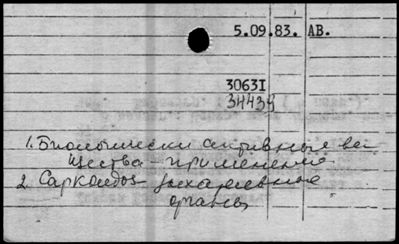 5.09.83. АВ.
30631
34434
1. Биологически активные ве-
щества - применение
2. Саркоидоз дыхательные
органы